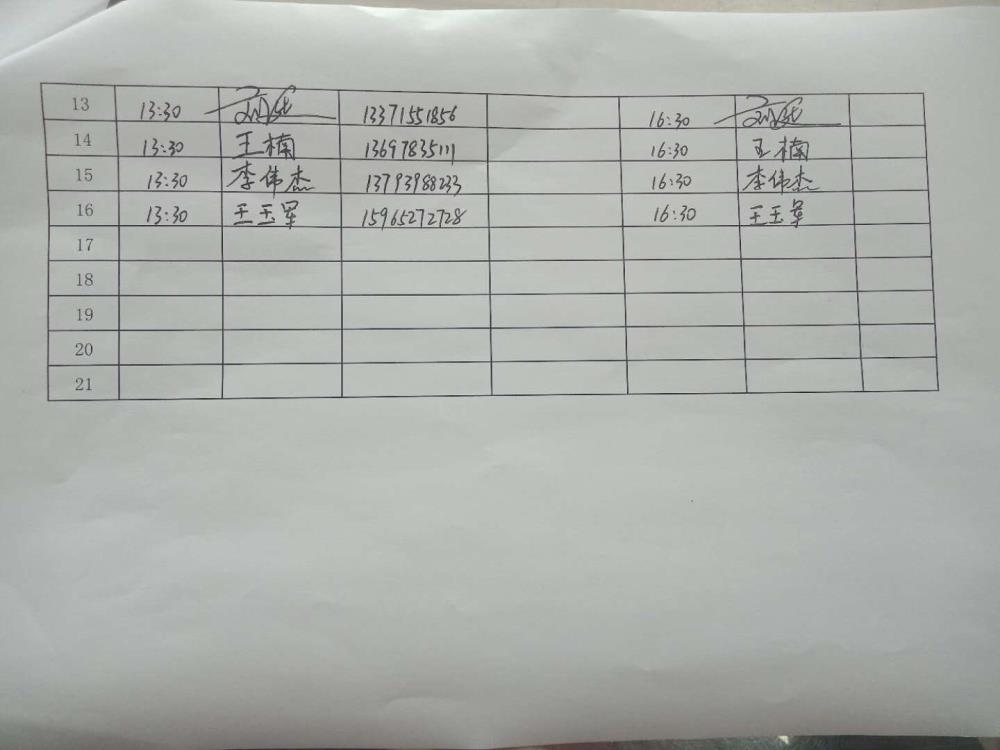 13 13:30 13371551856 16:30
14 13:30 王楠 13697835111 16:30 王楠
15 13:30 李伟杰 13793988233 16:30 李伟杰
16 13:30 王玉军 15965272728 16:30 王玉军
17
18
19
20
21